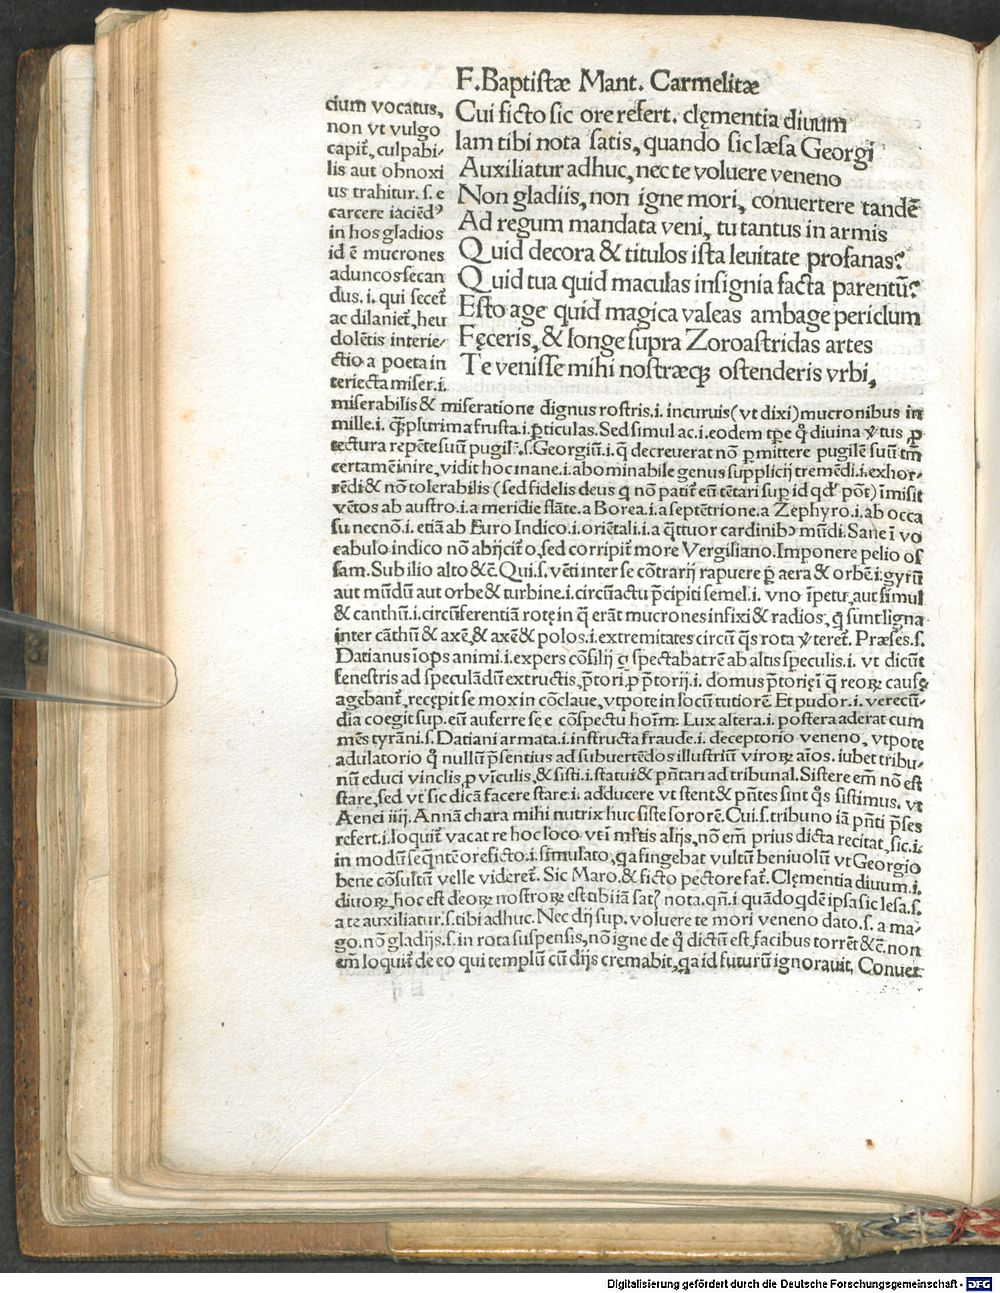 F. Baptistæ Mant. Carmelitæ
Cui ficto sic ore refert. clęmentia diuum
Iam tibi nota satis, quando sic læsa Georgi
Auxiliatur adhuc, nec te voluere veneno
Non gladiis, non igne mori, conuertere tandē
Ad regum mandata veni, tu tantus in armis
Quid decora & titulos ista leuitate profanas?
Quid tua quid maculas insignia facta parentū?
Esto age quid magica valeas ambage periclum
Fęceris, & longe supra Zoroastridas artes
Te venisse mihi nostræq; ostenderis vrbi,
cium vocatus,
non vt vulgo
capit̄, culpabi-
lis aut obnoxi
us trahitur. s. e
carcere iaciēdꝰ
in hos gladios
id ē mucrones
aduncos secan
dus. i. qui secet̄
ac dilaniet̄, heu
dolētis interie-
ctio a poeta in
teriecta miser. i.
miserabilis & miseratione dignus rostris. i. incuruis (vt dixi) mucronibus in
mille. i. q̄ꝫ plurima frusta. i. ꝑticulas. Sed simul ac. i. eodem tꝑe q̄ diuina ṽtus ꝓ
tectura repēte suū pugilē. s. Georgiū. i. q̄ decreuerat nō ꝑmittere pugilē suū tm̄
certamē inire, vidit hoc inane. i. abominabile genus supplicij tremēdi. i. exhor-
rēdi & nō tolerabilis (sed fidelis deus q nō patit̄ eū tētari sup id qd̛ pōt) īmisit
vētos ab austro. i. a meridie flāte. a Borea. i. a septētrione. a Zephyro. i. ab occa
su necnō. i. etiā ab Euro Indico. i. oriētali. i. a q̄ttuor cardinibꝰ mūdi. Sane ī vo
cabulo indico nō abijcit̄ o, sed corripit̄ more Vergiliano. Imponere pelio os
sam. Sub ilio alto &c̄. Qui. s. vēti inter se cōtrarij rapuere p̄ aera & orbē. i. gyrū
aut mūdū aut orbe & turbine. i. circūactu p̄cipiti semel. i. vno īpetu, aut simul
& canthū. i. circūferentiā rotę in q̄ erāt mucrones infixi & radios, q̄ sunt ligna
inter cāthū & axē, & axē & polos. i. extremitates circū q̄s rota ṽteret̄. Præses. s.
Datianus īops animi. i. expers cōsilij q̄ spectabat rē ab altis speculis. i. vt dicūt
fenestris ad speculādū extructis, p̄tori. ꝓ p̄torij. i. domus p̄torię ī q̄ reoꝝ causę
agebant̄, recępit se mox in cōclaue, vtpote in locū tutiorē. Et pudor. i. verecū-
dia coegit sup. eū auferre se e cōspectu hoīm: Lux altera. i. postera aderat cum
mēs tyrāni. s. Datiani armata. i. instructa fraude. i. deceptorio veneno, vtpote
adulatorio q̄ nullū p̄sentius ad subuertēdos illustriū viroꝝ aīos. iubet tribu-
nū educi vinclis, ꝓ vīculis, & sisti. i. statui & p̄ntari ad tribunal. Sistere em̄ nō est
stare, sed vt sic dicā facere stare. i. adducere vt stent & p̄ntes sint q̄s sistimus. vt
Aenei iiij. Annā chara mihi nutrix huc siste sororē. Cui. s. tribuno iā p̄nti p̄ses
refert. i. loquit̄ vacat re hoc loco vti m̄ltis alijs, nō em̄ prius dicta recitat, sic. i.
in modū seq̄ntē ore ficto. i. simulato, q̄a fingebat vultū beniuolū vt Georgio
bene cōsultū velle videret̄. Sic Maro. & ficto pectore fat̄. Clęmentia diuum. i.
diuoꝝ, hoc est deoꝝ nostroꝝ est tibi iā satꝭ nota. qn̄. i. quādoqdē ipsa sic lesa. s.
a te auxiliatur. s. tibi adhuc. Nec dij sup. voluere te mori veneno dato. s. a ma-
go. nō gladijs. s. in rota suspensis, nō igne de q̄ dictū est, facibus torrēt &c̄. non
em̄ loquit̄ de eo qui templū cū dijs cremabit, q̄a id futurū ignorauit, Conuer
Digitalisierung gefördert durch die Deutsche Forschungsgemeinschaft - DFG